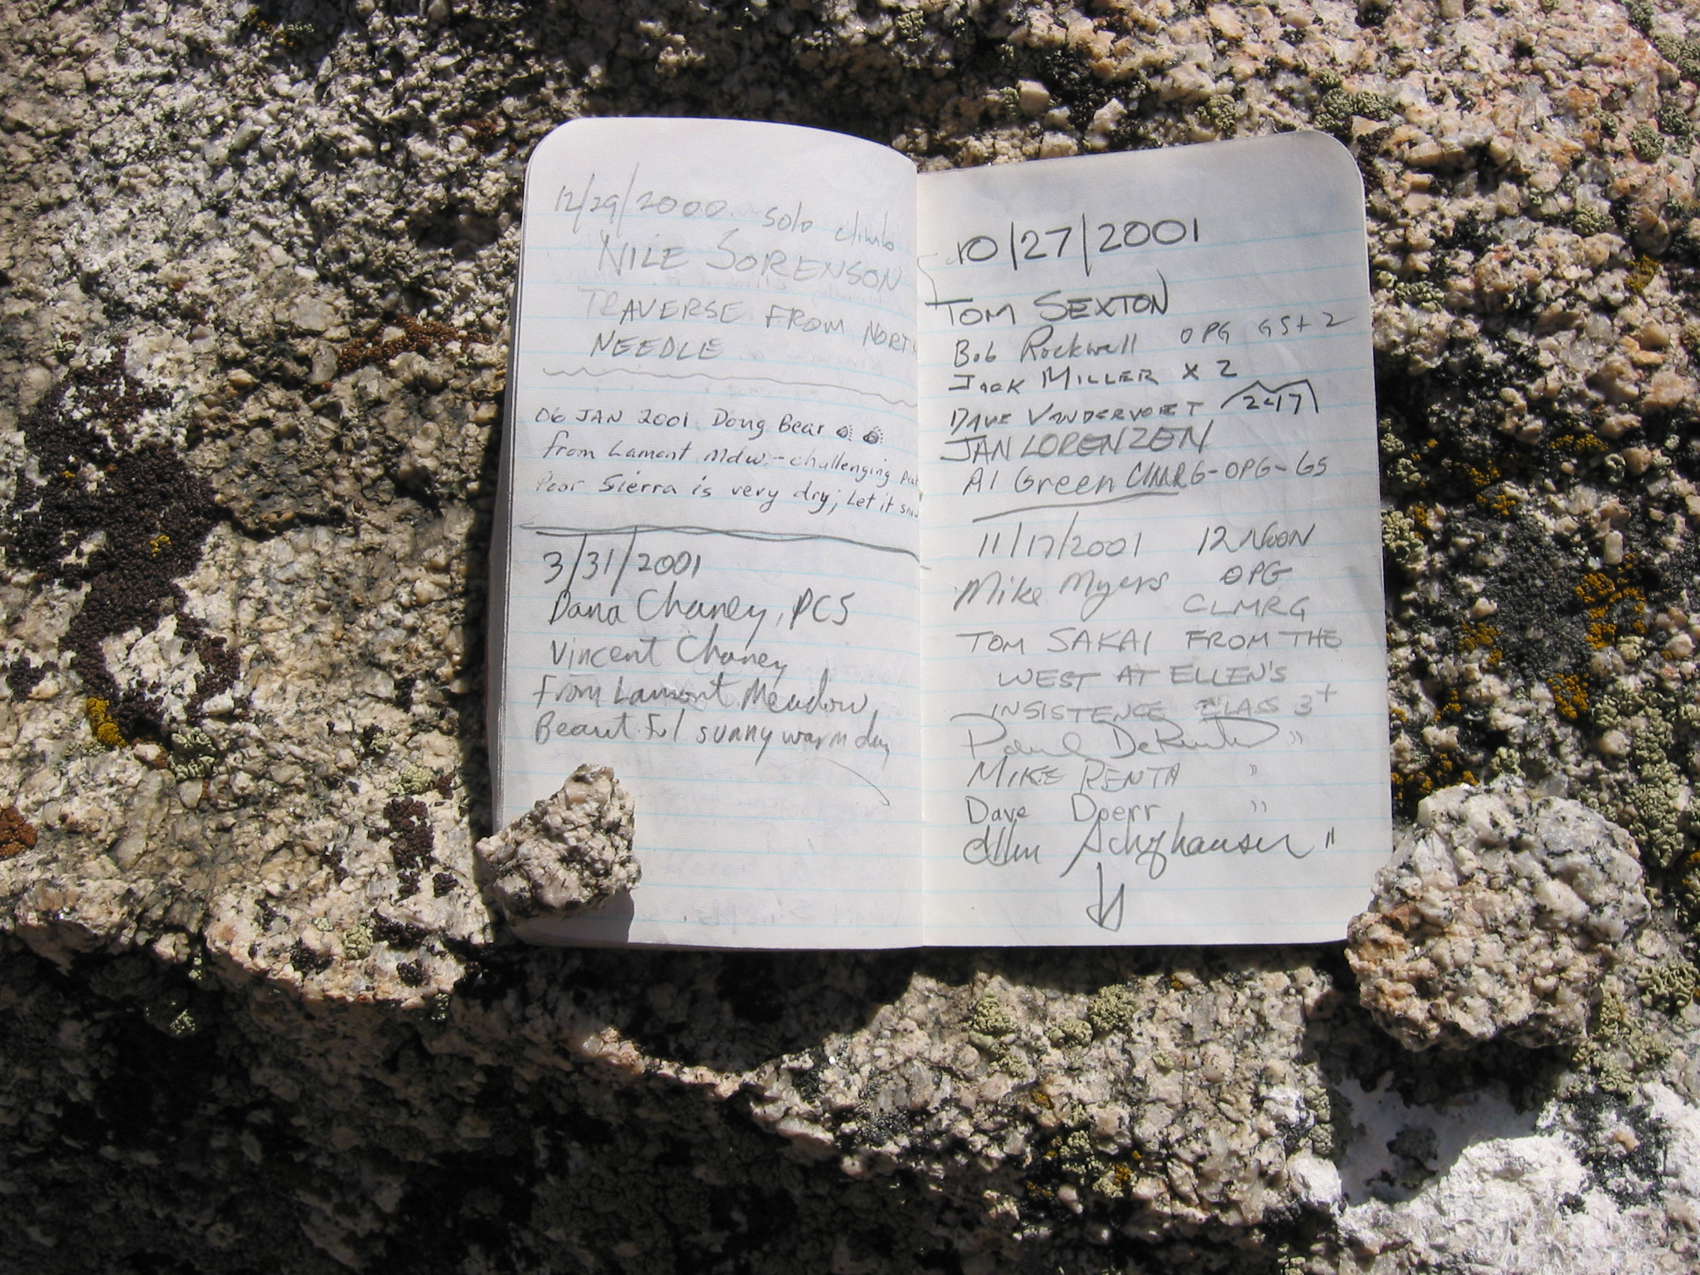 12/29/2000 solo climb
NILE SORENSON
TRAVERSE FROM NORTH
NEEDLE
06 JAN 2001 Doug Bear
from Lamont Mdw.-challenging
Poor Sierra is very dry; Let it
3/31/2001
Dana Chaney, PCS
Vincent Chaney
From Lamont Meadow,
Beautiful sunny warm day
10/27/2001
TOM SEXTON
Bob Rockwell OPG GS+2
JACK MILLER X 2
DAVE VANDERVOET 2-17
JAN LORENZEN
Al Green CLMRG-OPG-GS
11/17/2001 12 NOON
Mike Myers OPG
CLMRG
TOM SAKAI FROM THE
WEST AT ELLEN'S
INSISTENCE CLASS 3+
Paul "
MIKE RENTA "
Dave Doerr "
"